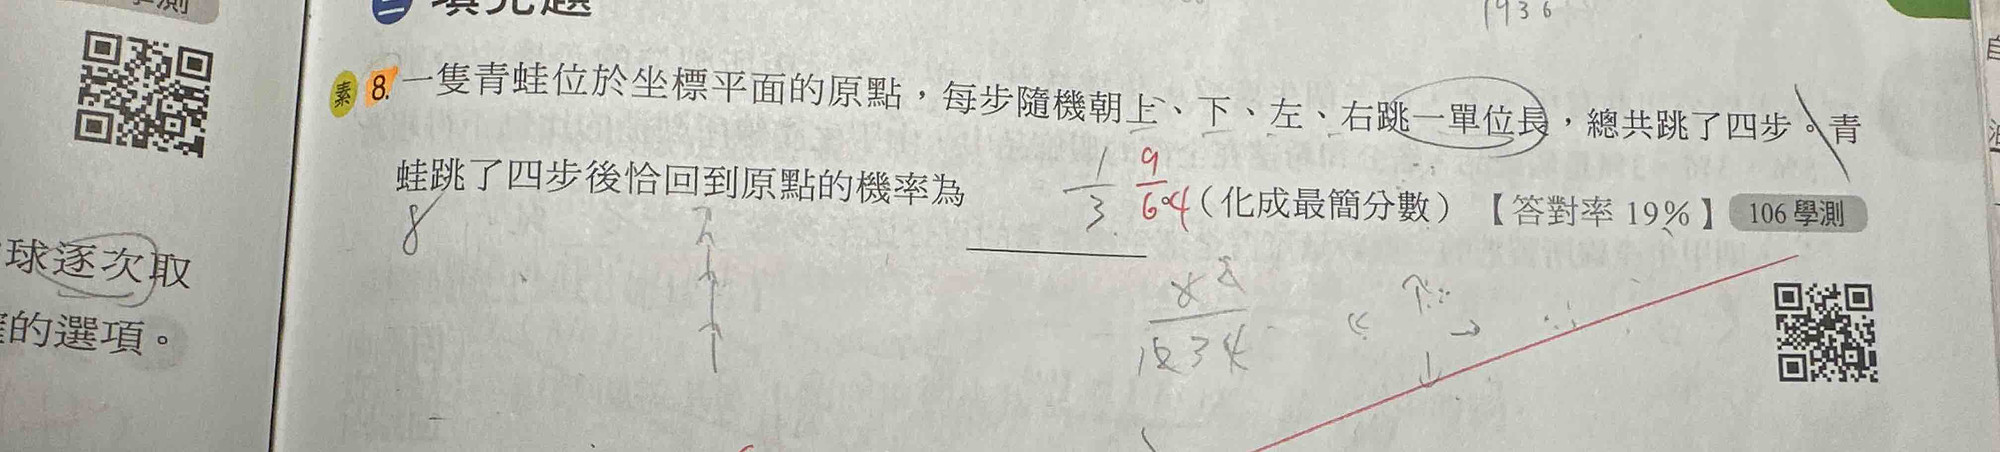 填充題
1936
素 8. 一隻青蛙位於坐標平面的原點，每步隨機朝上、下、左、右跳一單位長，總共跳了四步。青
蛙跳了四步後恰回到原點的機率為 1/3 9/64 （化成最簡分數）【答對率 19%】 106 學測
8
球逐次取
的選項。